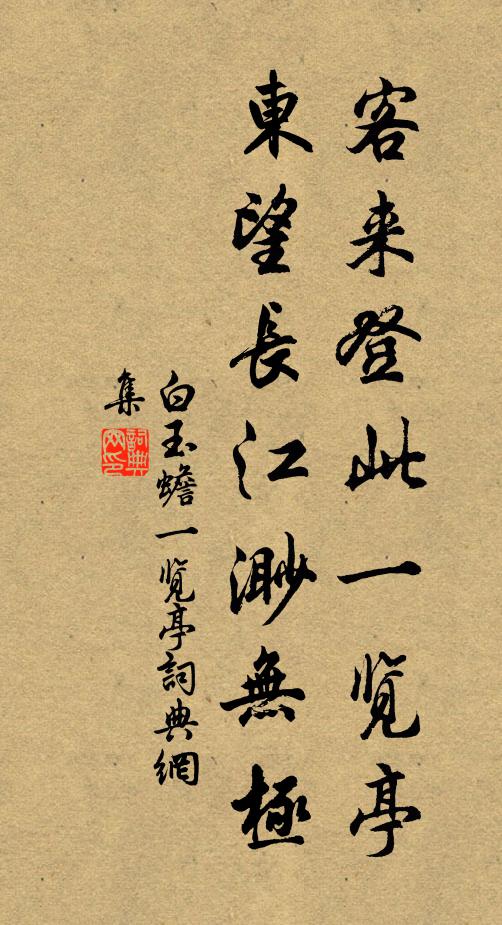 客来登此一览亭
東望長江渺無極
白玉蟾一览亭詞典網
集
詞典
网印